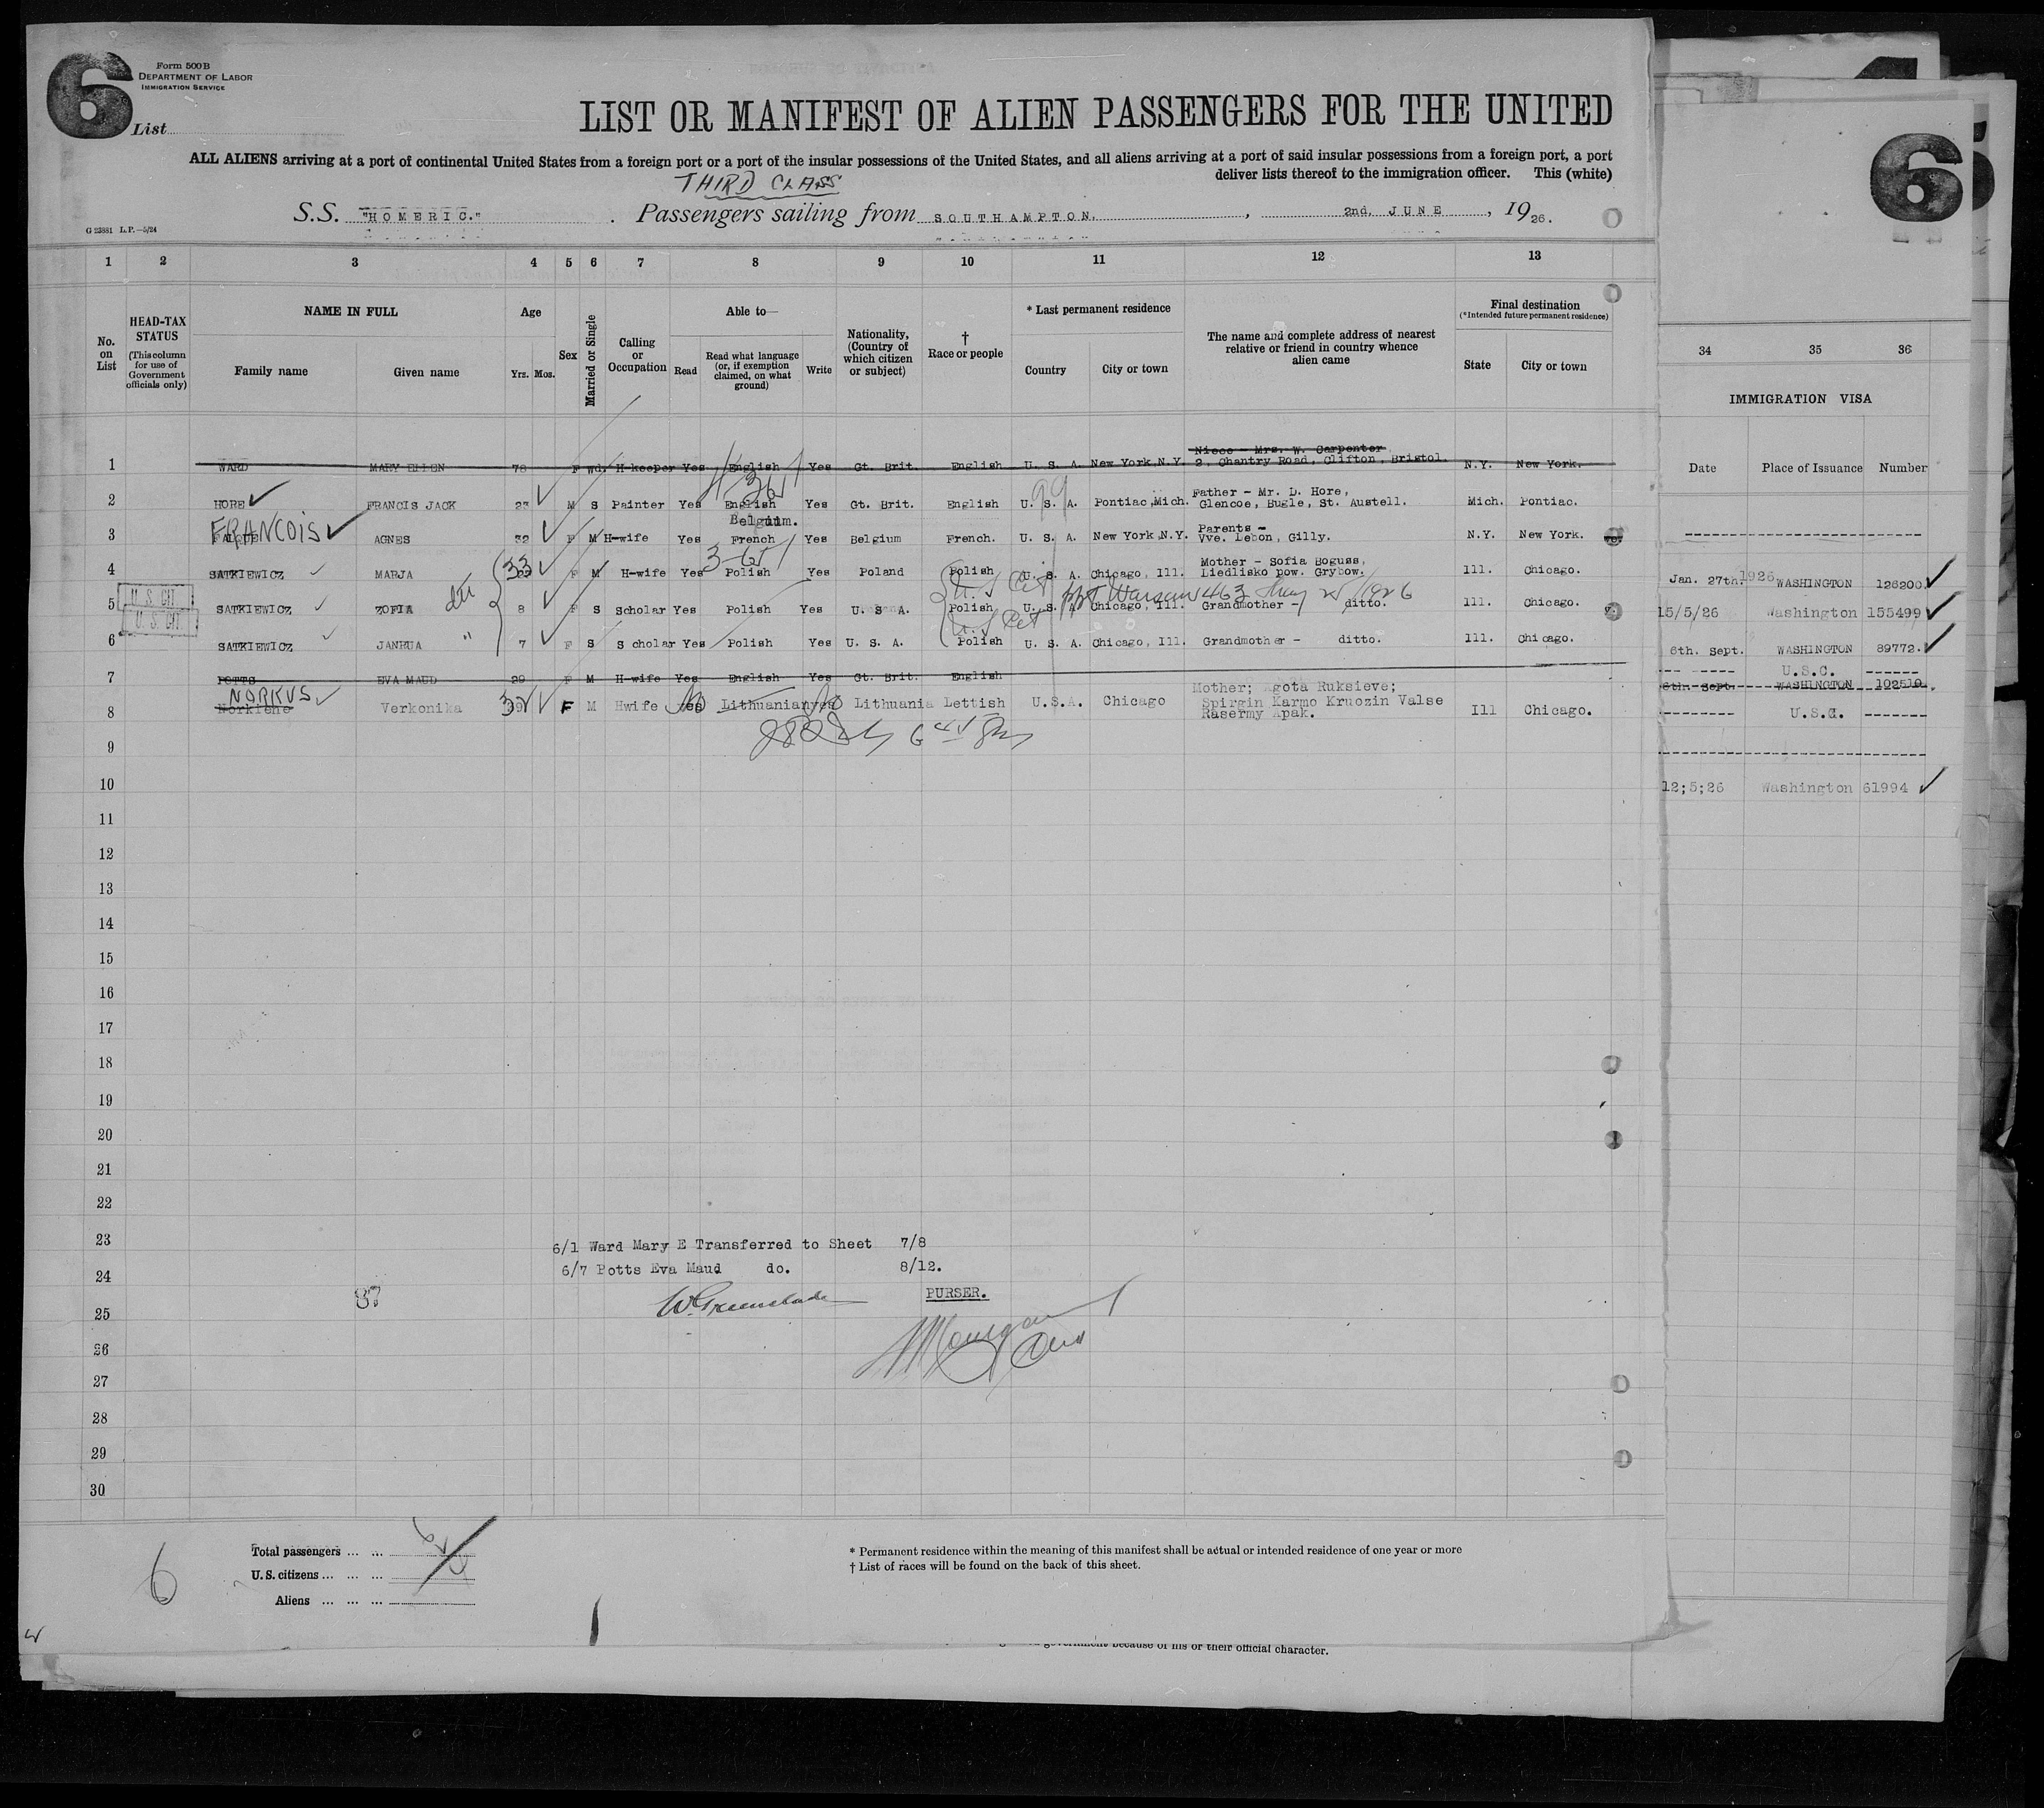 6
Form 500 B
DEPARTMENT OF LABOR
IMMIGRATION SERVICE
List
LIST OR MANIFEST OF ALIEN PASSENGERS FOR THE UNITED
ALL ALIENS arriving at a port of continental United States from a foreign port or a port of the insular possessions of the United States, and all aliens arriving at a port of said insular possessions from a foreign port, a port
deliver lists thereof to the immigration officer. This (white)
THIRD CLASS
S.S. "HOMERIC." Passengers sailing from SOUTHAMPTON, 2nd, JUNE, 1926.
G 23881 L.P.—5/24
1 2 3 4 5 6 7 8 9 10 11 12 13
No. on List
HEAD-TAX STATUS
(This column for use of Government officials only)
NAME IN FULL
Family name Given name
Age
Yrs. Mos.
Sex
Married or Single
Calling or Occupation
Able to—
Read
Read what language (or, if exemption claimed, on what ground)
Write
Nationality, (Country of which citizen or subject)
† Race or people
* Last permanent residence
Country City or town
The name and complete address of nearest relative or friend in country whence alien came
Final destination
(*Intended future permanent residence)
State City or town
Niece - Mrs. W. Carpenter
1 WARD MARY ELLEN 78 F wd. H-keeper Yes English Yes Gt. Brit. English U. S. A. New York,N.Y. 2, Chantry Road, Clifton, Bristol. N.Y. New York.
Father - Mr. D. Hore,
2 HORE FRANCIS JACK 23 M S Painter Yes English Yes Gt. Brit. English U. S. A. Pontiac,Mich. Glencoe, Bugle, St. Austell. Mich. Pontiac.
FRANCOIS Belgium. Parents -
3 AGNES 32 F M H-wife Yes French Yes Belgium French. U. S. A. New York,N.Y. Vve. Lebon, Gilly. N.Y. New York.
Mother - Sofia Boguss,
4 SATKIEWICZ MARJA 33 F M H-wife Yes Polish Yes Poland Polish U. S. A. Chicago, Ill. Liedlisko pow. Grybow. Ill. Chicago.
U.S. CIT
5 SATKIEWICZ ZOFIA 8 F S Scholar Yes Polish Yes U. S. A. Polish U. S. A. Chicago, Ill. Grandmother - ditto. Ill. Chicago.
U.S. CIT
6 SATKIEWICZ JANRUA " 7 F S Scholar Yes Polish Yes U. S. A. Polish U. S. A. Chicago, Ill. Grandmother - ditto. Ill. Chicago.
7 POTTS EVA MAUD 29 F M H-wife Yes English Yes Gt. Brit. English
NORKUS Mother; Agota Ruksieve;
8 Norkiene Verkonika F M Hwife Yes Lithuanian yes Lithuania Lettish U.S.A. Chicago Spirgin Karmo Kruozin Valse Ill Chicago.
Rasermy Apak.
9
10
11
12
13
14
15
16
17
18
19
20
21
22
23 6/1 Ward Mary E Transferred to Sheet 7/8
24 6/7 Potts Eva Maud do. 8/12.
87
25 PURSER.
26
27
28
29
30
6
Total passengers
U.S. citizens
Aliens
* Permanent residence within the meaning of this manifest shall be actual or intended residence of one year or more
† List of races will be found on the back of this sheet.
government because of his or their official character.
6
34 35 36
IMMIGRATION VISA
Date Place of Issuance Number
Jan. 27th 1926 WASHINGTON 126200
15/5/26 Washington 155499
6th. Sept. WASHINGTON 89772.
U.S.C.
6th. Sept. WASHINGTON 102510.
12;5;26 Washington 61994